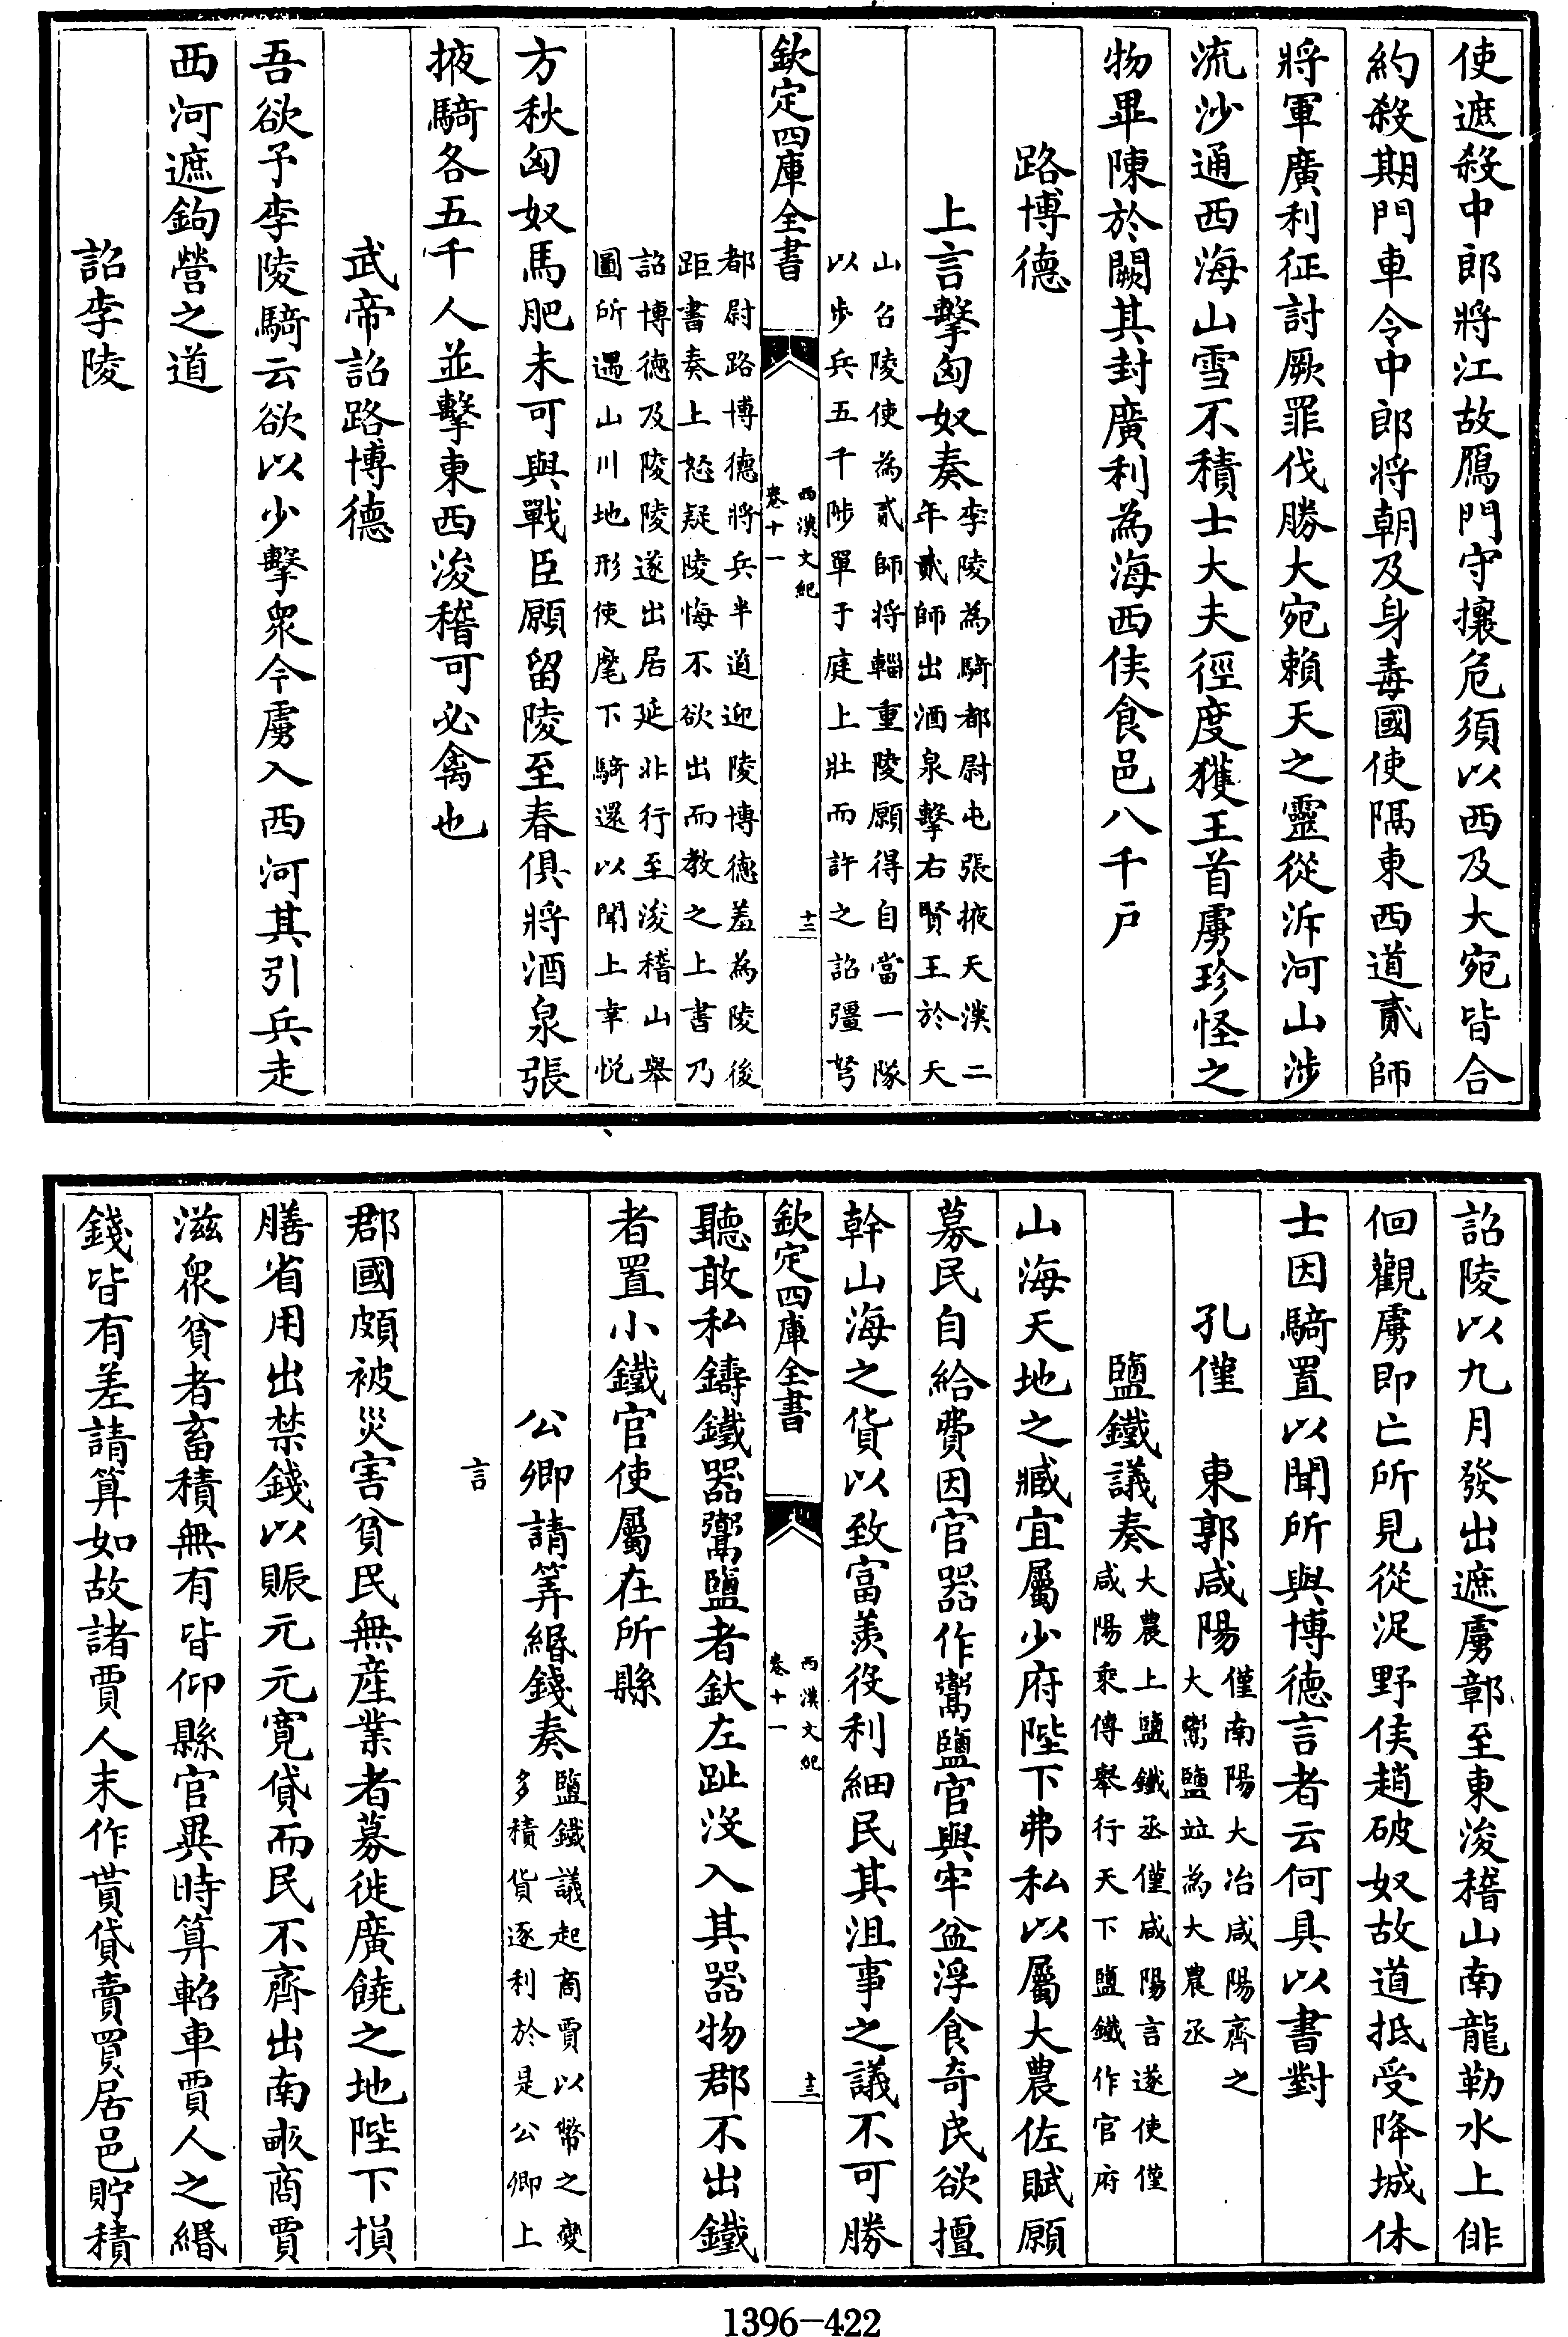 使遮殺中郎將江故鴈門守攘危須以西及大宛皆合
約殺期門車令中郎將朝及身毒國使隔東西道貳師
將軍廣利征討厥罪伐勝大宛賴天之靈從泝河山涉
流沙通西海山雪不積士大夫徑度獲王首虜珍怪之
物畢陳於闕其封廣利為海西侯食邑八千戶
路博德
上言擊匈奴奏李陵為騎都尉屯張掖天漢二
年貳師出酒泉擊右賢王於天
山召陵使為貳師將輜重陵願得自當一隊
以步兵五千陟單于庭上壯而許之詔彊弩
欽定四庫全書
西漢文紀
卷十一
十三
都尉路博德將兵半道迎陵博德羞為陵後
距書奏上怒疑陵悔不欲出而教之上書乃
詔博德及陵陵遂出居延北行至浚稽山舉
圖所過山川地形使麾下騎還以聞上幸悅
方秋匈奴馬肥未可與戰臣願留陵至春俱將酒泉張
掖騎各五千人並擊東西浚稽可必禽也
武帝詔路博德
吾欲予李陵騎云欲以少擊衆今虜入西河其引兵走
西河遮鉤營之道
詔李陵
詔陵以九月發出遮虜鄣至東浚稽山南龍勒水上俳
佪觀虜即亡所見從浞野侯趙破奴故道抵受降城休
士因騎置以聞所與博德言者云何具以書對
孔僅　東郭咸陽僅南陽大冶咸陽齊之
大鬻鹽竝為大農丞
鹽鐵議奏大農上鹽鐵丞僅咸陽言遂使僅
咸陽乘傳舉行天下鹽鐵作官府
山海天地之臧宜屬少府陛下弗私以屬大農佐賦願
募民自給費因官器作鬻鹽官與牢盆浮食奇民欲擅
幹山海之貨以致富羨役利細民其沮事之議不可勝
欽定四庫全書
西漢文紀
卷十一
十三
聽敢私鑄鐵器鬻鹽者釱左趾沒入其器物郡不出鐵
者置小鐵官使屬在所縣
公卿請筭緡錢奏鹽鐵議起商賈以幣之變
多積貨逐利於是公卿上
言
郡國頗被災害貧民無産業者募徙廣饒之地陛下損
膳省用出禁錢以賑元元寬貸而民不齊出南畝商賈
滋衆貧者畜積無有皆仰縣官異時算軺車賈人之緡
錢皆有差請算如故諸賈人末作貰貸賣買居邑貯積
1396-422